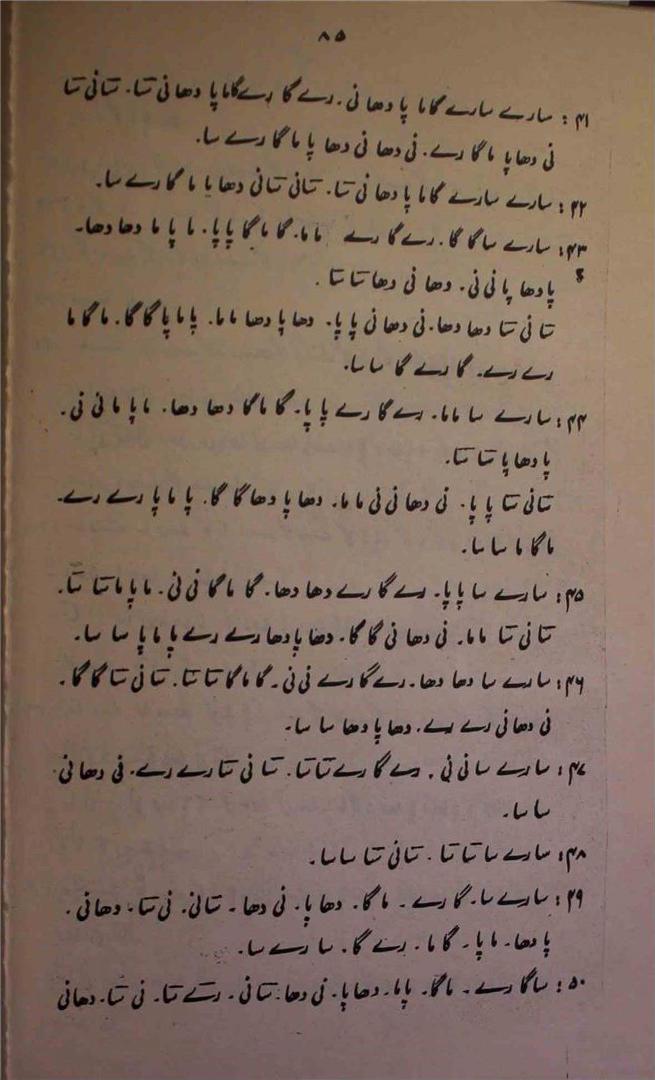 ۸۵
۴۱: سارے سارے گاما پا دھا نی۔ رے گا رے گاما پا دھا نی سَا۔ سَا نی سَا
نی دھا پا ما گا رے۔ نی دھا نی دھا پا ما گا رے سا۔
۴۲: سارے سارے گاما پا دھا نی سَا۔ سَا نی سَا نی دھا پا ما گا رے سا۔
۴۳: سارے سا گا گا۔ رے گا رے ما ما۔ گا ما گا پا پا۔ ما پا ما دھا دھا۔
پا دھا پا نی نی۔ دھا نی دھا سَا سَا۔
سَا نی سَا دھا دھا۔ نی دھا نی پا پا۔ دھا پا دھا ما ما۔ پا ما پا گا گا۔ ما گا ما
رے رے۔ گا رے گا سا سا۔
۴۴: سارے سا ما ما۔ رے گا رے پا پا۔ گا ما گا دھا دھا۔ ما پا ما نی نی۔
پا دھا پا سَا سَا۔
سَا نی سَا پا پا۔ نی دھا نی ما ما۔ دھا پا دھا گا گا۔ پا ما پا رے رے۔
ما گا ما سا سا۔
۴۵: سارے سا پا پا۔ رے گا رے دھا دھا۔ گا ما گا نی نی۔ ما پا ما سَا سَا۔
سَا نی سَا ما ما۔ نی دھا نی گا گا۔ دھا پا دھا رے رے پا ما پا سا سا۔
۴۶: سارے سا دھا دھا۔ رے گا رے نی نی۔ گا ما گا سَا سَا۔ سَا نی سَا گا گا۔
نی دھا نی رے رے۔ دھا پا دھا سا سا۔
۴۷: سارے سا نی نی۔ رے گا رے سَا سَا۔ سَا نی سَا رے رے۔ نی دھا نی
سا سا۔
۴۸: سارے سا سَا سَا۔ سَا نی سَا سا سا۔
۴۹: سارے سا۔ گا رے۔ ما گا۔ دھا پا۔ نی دھا۔ سَا نی۔ نی سَا۔ دھا نی۔
پا دھا۔ ما پا۔ گا ما۔ رے گا۔ سا رے سا۔
۵۰: سا گا رے۔ ما گا۔ پا ما۔ دھا پا۔ نی دھا۔ سَا نی۔ رے سَا۔ نی سَا۔ دھا نی